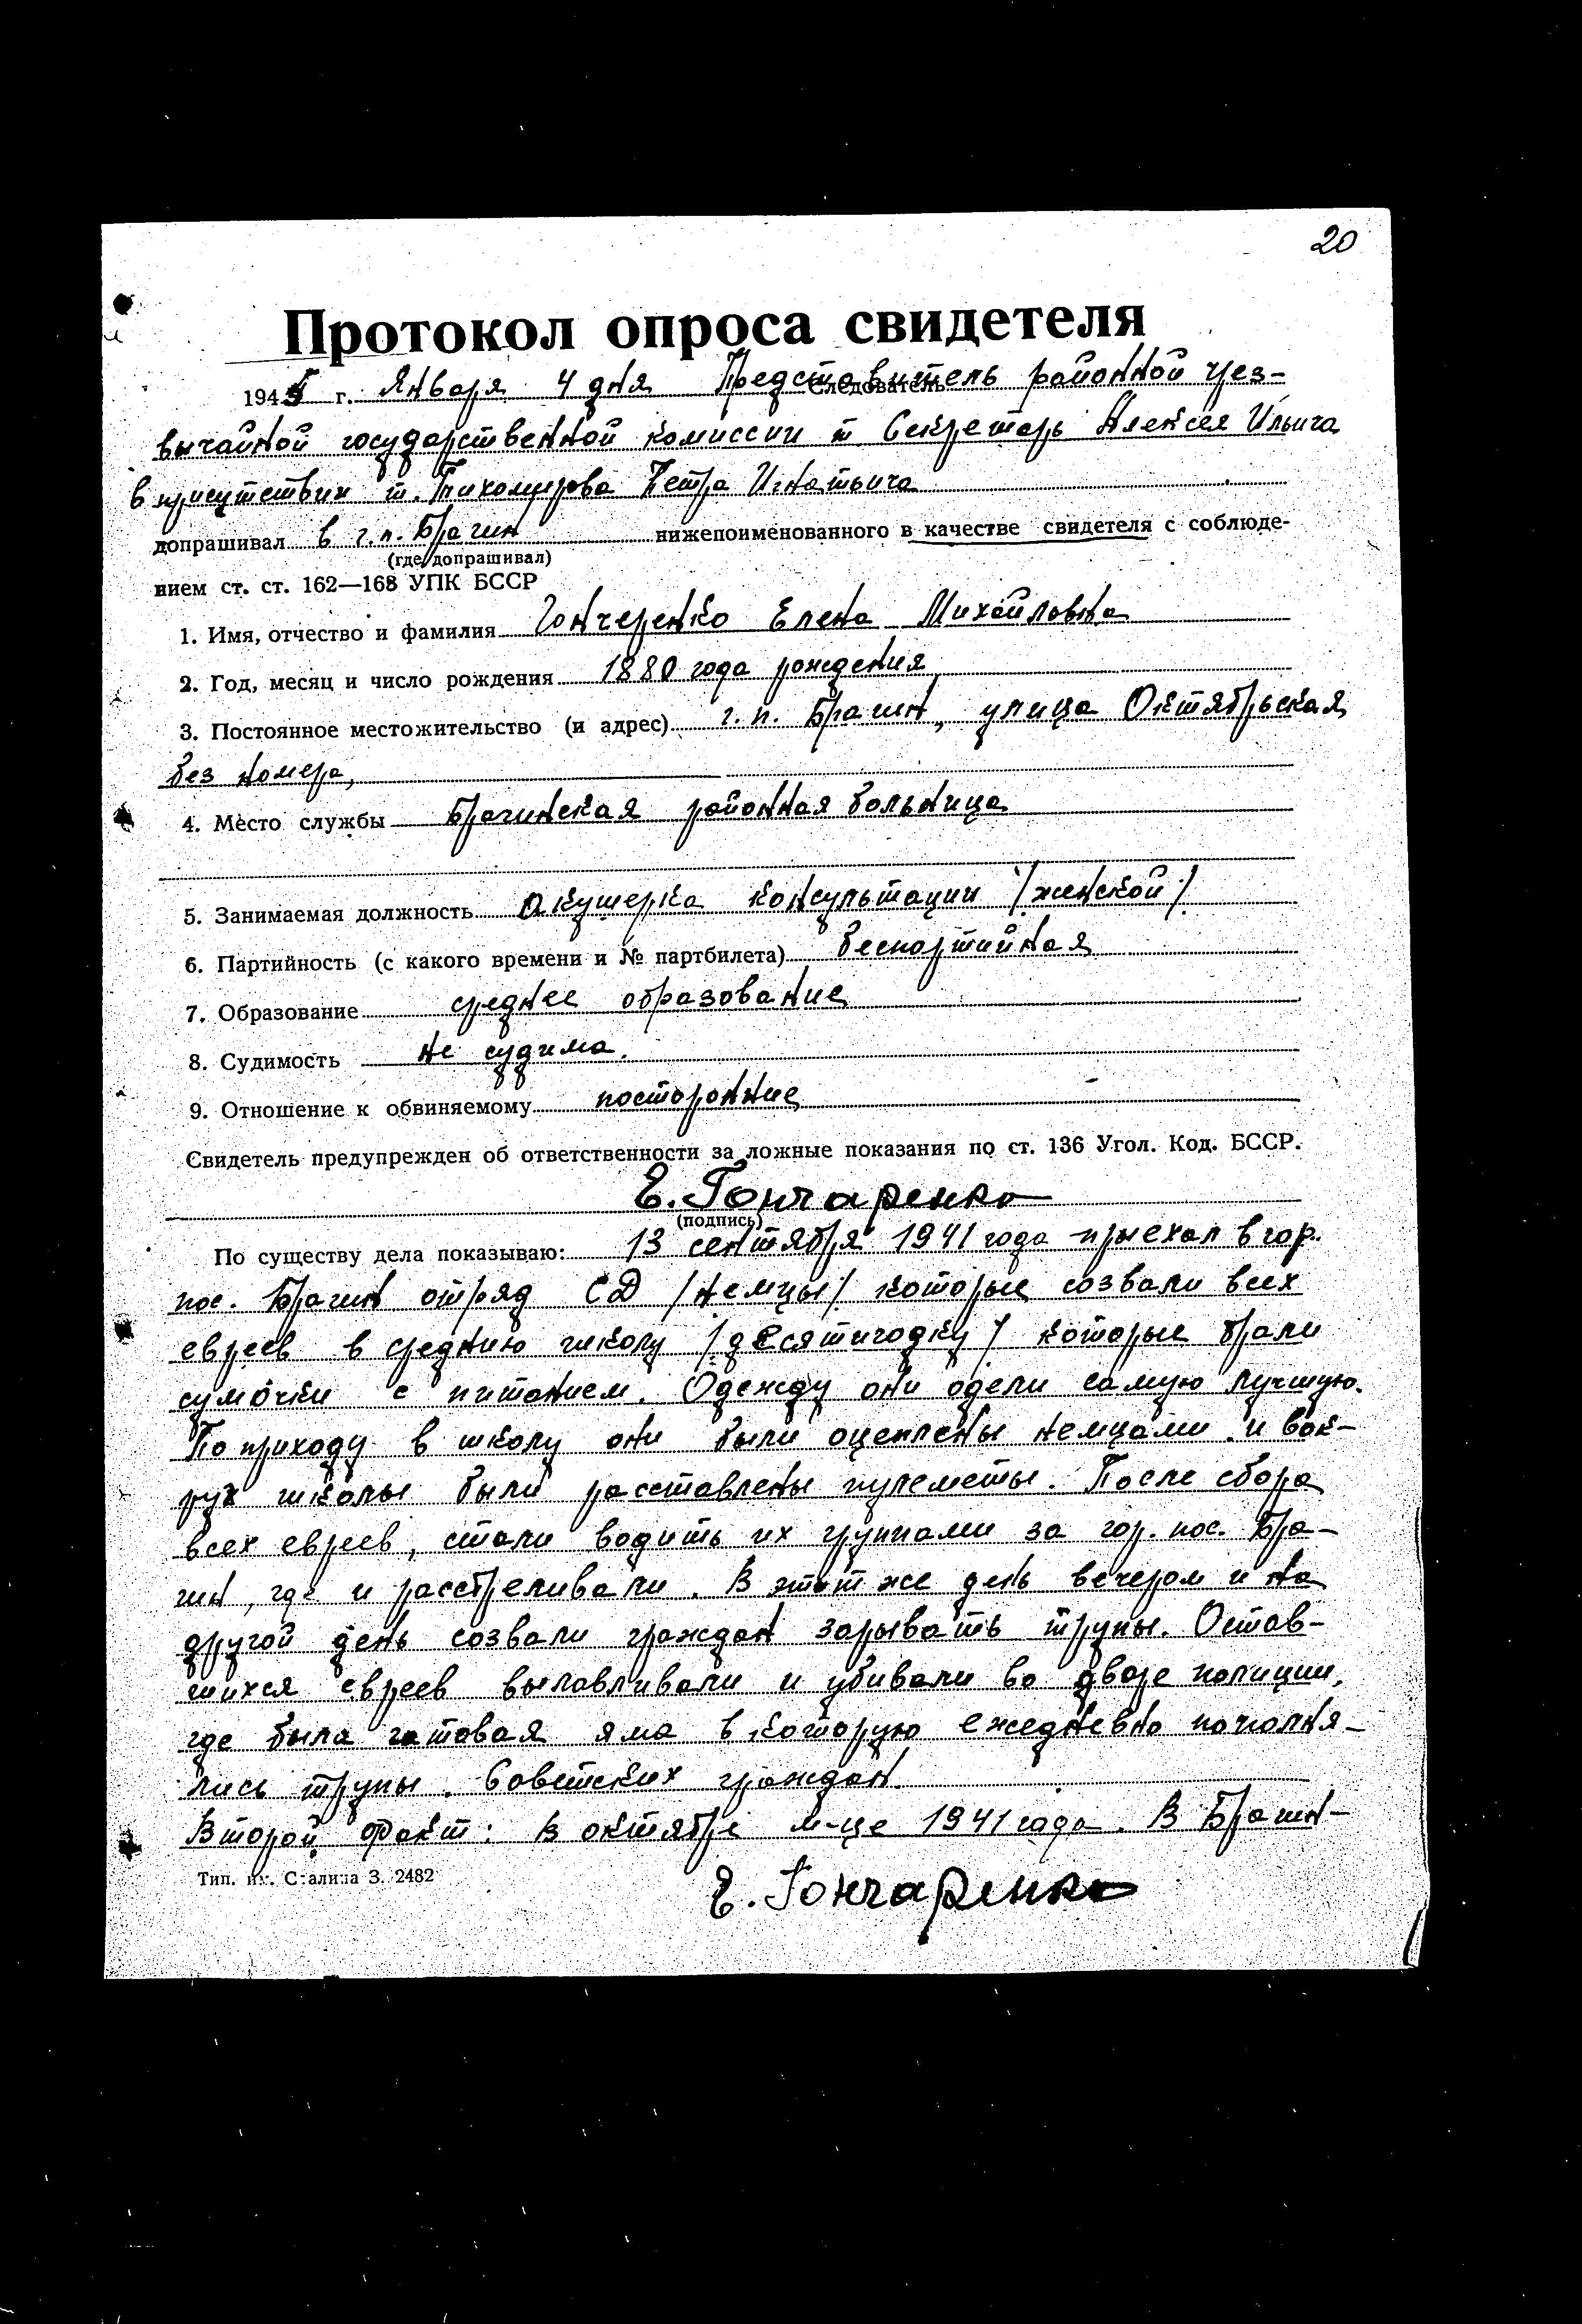 20
Протокол опроса свидетеля
1945 г. Января 4 дня Представитель районной чрез-
Следователь
вычайной государственной комиссии т Секретарь Алексея Ильича
в присутствии т. Тихомирова Петра Игнатьича
допрашивал в г.п. Брагин нижепоименованного в качестве свидетеля с соблюде-
(где допрашивал)
нием ст. ст. 162—168 УПК БССР
1. Имя, отчество и фамилия Гончеренко Елена Михайловна
2. Год, месяц и число рождения 1880 года рождения
3. Постоянное местожительство (и адрес) г. п. Брагин, улица Октябрьская
без номера,
4. Место службы Брагинская районная больница
5. Занимаемая должность Окушерка консультации /женской/
6. Партийность (с какого времени и № партбилета) беспортийная
7. Образование среднее образование
8. Судимость не судима.
9. Отношение к обвиняемому посторонние
Свидетель предупрежден об ответственности за ложные показания по ст. 136 Угол. Код. БССР.
Е. Гончаренко
(подпись)
По существу дела показываю: 13 сентября 1941 года приехал в гор.
пос. Брагин отряд СД /немцы/ которые созвали всех
евреев в среднюю школу /десятигодку/ которые брали
сумочки с питанием. Одежду они одели самую лучшую.
По приходу в школу они были оцеплены немцами и вок-
руг школы были расставлены пулеметы. После сбора
всех евреев, стали водить их группами за гор. пос. Бра-
гин, где и расстреливали. В этот же день вечером и на
другой день созвали граждан зарывать трупы. Остав-
шихся евреев вылавливали и убивали во дворе полиции,
где была готовая яма в которую ежедневно пополня-
лись трупы. Советских граждан.
Второй факт: В октябре м-це 1941 года. В Брагин-
Тип. им. Сталина З. 2482
Е. Гончаренко